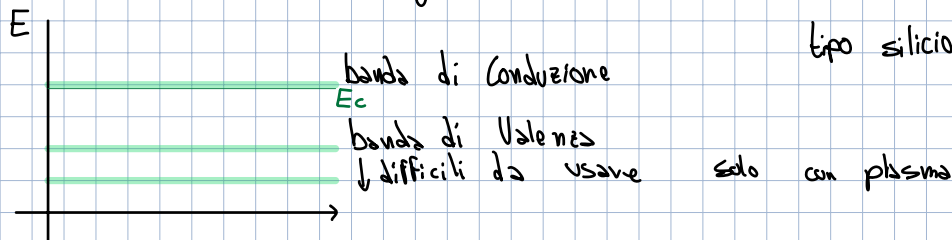 E
tipo silicio
banda di Conduzione
Ec
banda di Valenza
↓ difficili da usare solo con plasma